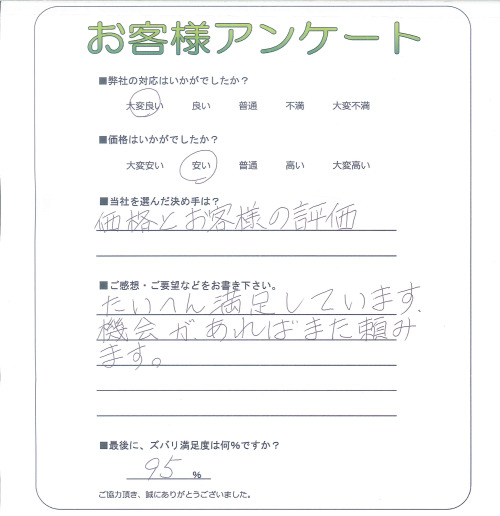 お客様アンケート
■弊社の対応はいかがでしたか？
大変良い 良い 普通 不満 大変不満
■価格はいかがでしたか？
大変安い 安い 普通 高い 大変高い
■当社を選んだ決め手は？
価格とお客様の評価
■ご感想・ご要望などをお書き下さい。
たいへん満足しています.
機会が、あればまた頼み
ます。
■最後に、ズバリ満足度は何%ですか？
95 %
ご協力頂き、誠にありがとうございました。